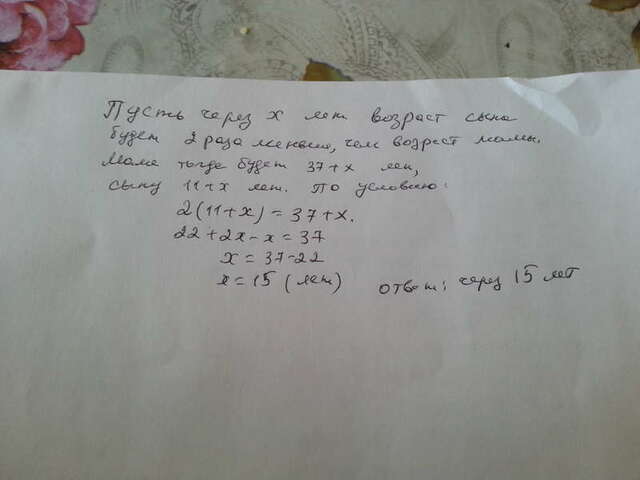 Пусть через x лет возраст сына
будет 2 раза меньше, чем возраст мамы.
Маме тогда будет 37+x лет,
сыну 11+x лет. По условию:
2(11+x)=37+x.
22+2x-x=37
x=37-22
x=15 (лет) ответ: через 15 лет